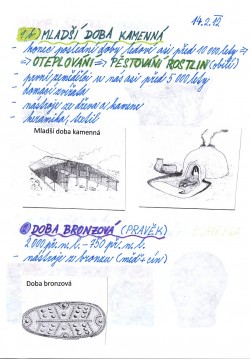 14.2.12
1.b) MLADŠÍ DOBA KAMENNÁ
- konec poslední doby ledové asi před 10 000 lety ⇒
⇒ OTEPLOVÁNÍ ⇒ PĚSTOVÁNÍ ROSTLIN (obilí)
- první zemědělci u nás asi před 5 000 lety
- domácí zvířata
- nástroje ze dřeva a kamene
- keramika, textil
Mladší doba kamenná
2. DOBA BRONZOVÁ (PRAVĚK)
2 000 př. n. l. - 750 př. n. l.
- nástroje z bronzu (měď + cín)
Doba bronzová